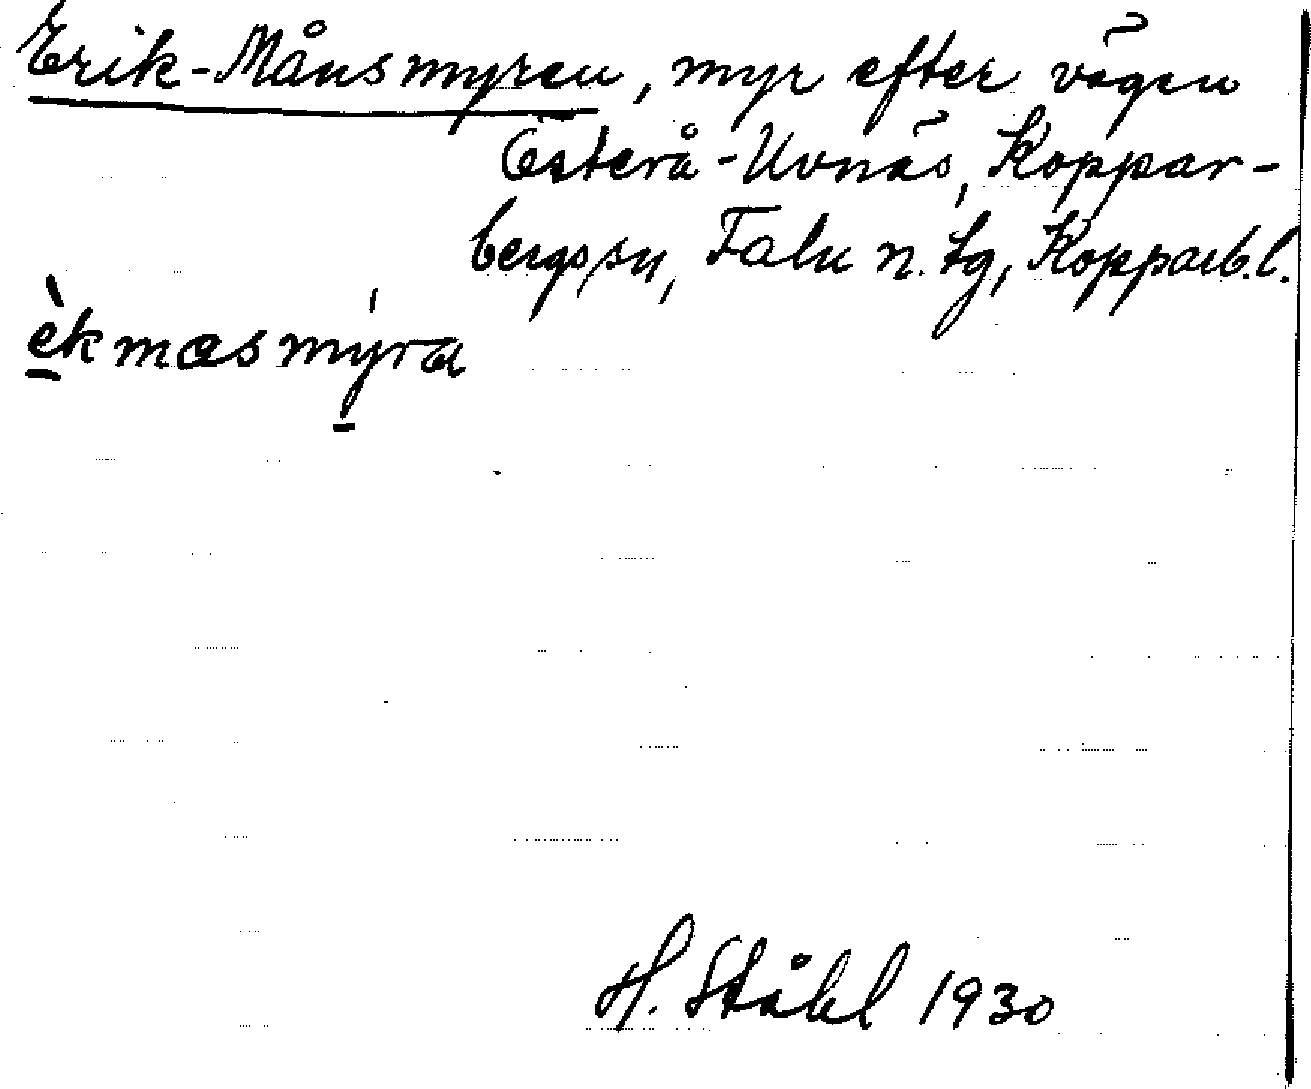 Erik-Månsmyren, myr efter vägen
Österå-Uvnäs, Koppar-
bergs sn, Falu n. tg, Kopparb.l.
èkmæsmýra
H. Ståhl 1930